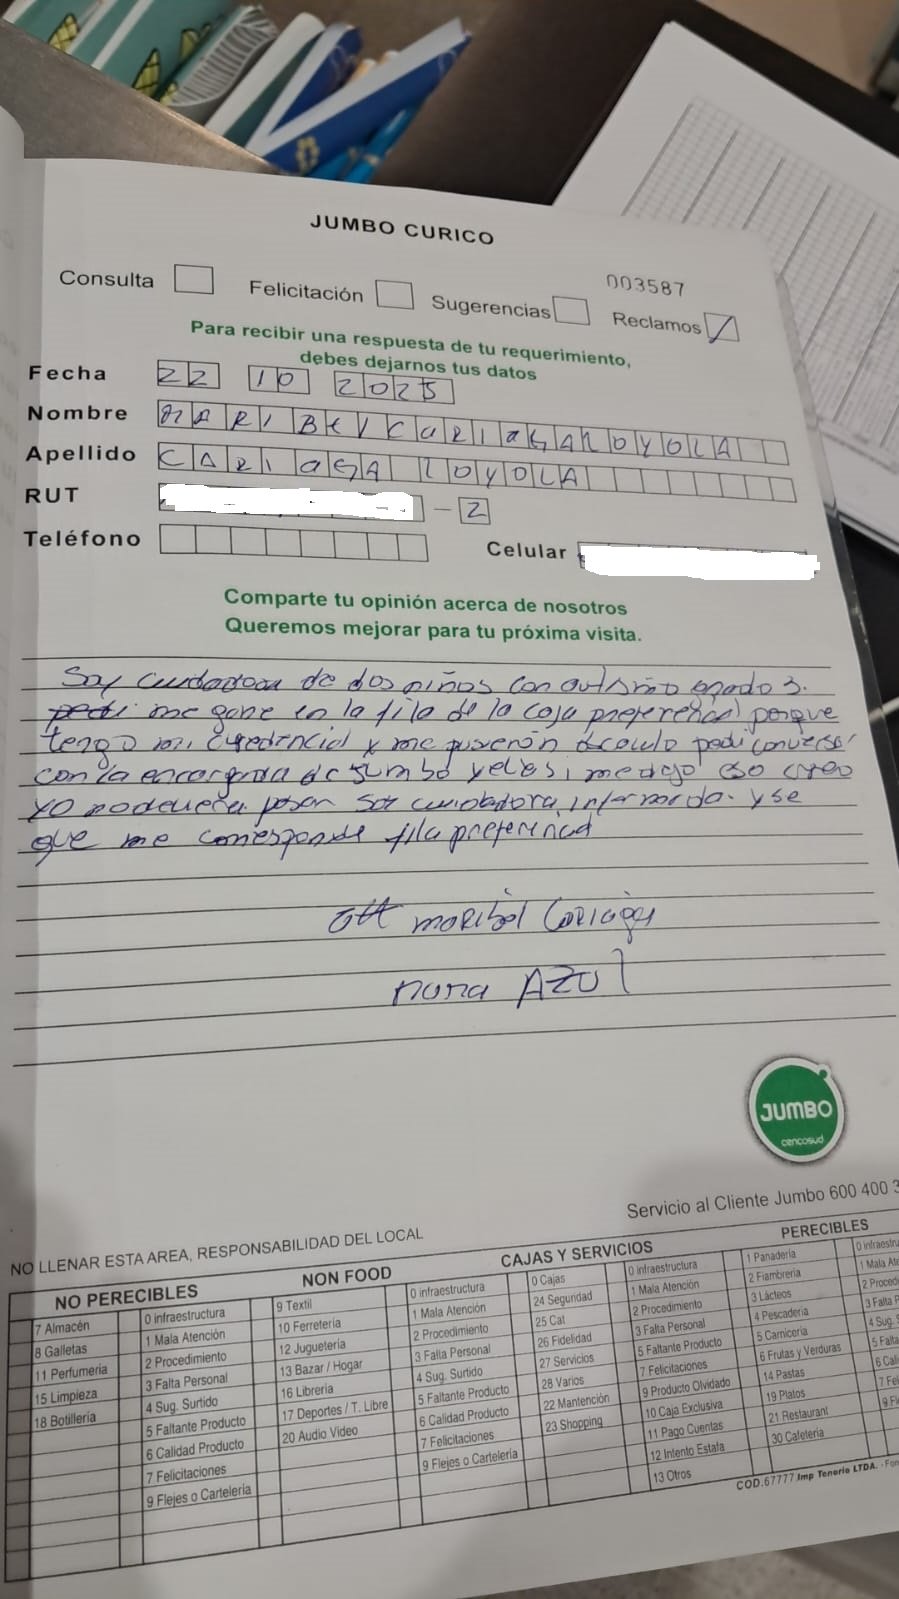 JUMBO CURICO
003587
Consulta Felicitación Sugerencias Reclamos
Para recibir una respuesta de tu requerimiento,
debes dejarnos tus datos
Fecha 22 10 2025
Nombre MARIBEL CARIAGA LOYOLA
Apellido CARIAGA LOYOLA
RUT - 2
Teléfono Celular
Comparte tu opinión acerca de nosotros
Queremos mejorar para tu próxima visita.
Soy cuidadora de dos niños con autismo grado 3.
pedi me pone en la fila de la caja preferencial porque
tengo mi credencial y me pusieron pedi conversar
con la encargada de Jumbo y me dijo eso creo
yo pasar soy cuidadora informada. y se
que me corresponde fila preferencial
att maribel Cariaga
mama AZUL
JUMBO
cencosud
Servicio al Cliente Jumbo 600 400 3
NO LLENAR ESTA AREA, RESPONSABILIDAD DEL LOCAL
NO PERECIBLES NON FOOD CAJAS Y SERVICIOS PERECIBLES
7 Almacén
8 Galletas
11 Perfumeria
15 Limpieza
18 Botilleria
0 infraestructura
1 Mala Atención
2 Procedimiento
3 Falta Personal
4 Sug. Surtido
5 Faltante Producto
6 Calidad Producto
7 Felicitaciones
9 Flejes o Cartelería
9 Textil
10 Ferreteria
12 Jugueteria
13 Bazar / Hogar
16 Libreria
17 Deportes / T. Libre
20 Audio Video
0 infraestructura
1 Mala Atención
2 Procedimiento
3 Falta Personal
4 Sug. Surtido
5 Faltante Producto
6 Calidad Producto
7 Felicitaciones
9 Flejes o Cartelería
0 Cajas
24 Seguridad
25 Cat
26 Fidelidad
27 Servicios
28 Varios
22 Mantención
23 Shopping
0 infraestructura
1 Mala Atención
2 Procedimiento
3 Falta Personal
5 Faltante Producto
7 Felicitaciones
9 Producto Olvidado
10 Caja Exclusiva
11 Pago Cuentas
12 Intento Estafa
13 Otros
1 Panaderia
2 Fiambreria
3 Lácteos
4 Pescaderia
5 Carniceria
6 Frutas y Verduras
14 Pastas
19 Platos
21 Restaurant
30 Cafeteria
0 infraestru
1 Mala Ate
2 Proced
3 Falta P
4 Sug. S
5 Falta
6 Cali
7 Fel
9 Fl
COD.67777 Imp Tenorio LTDA. - Fon